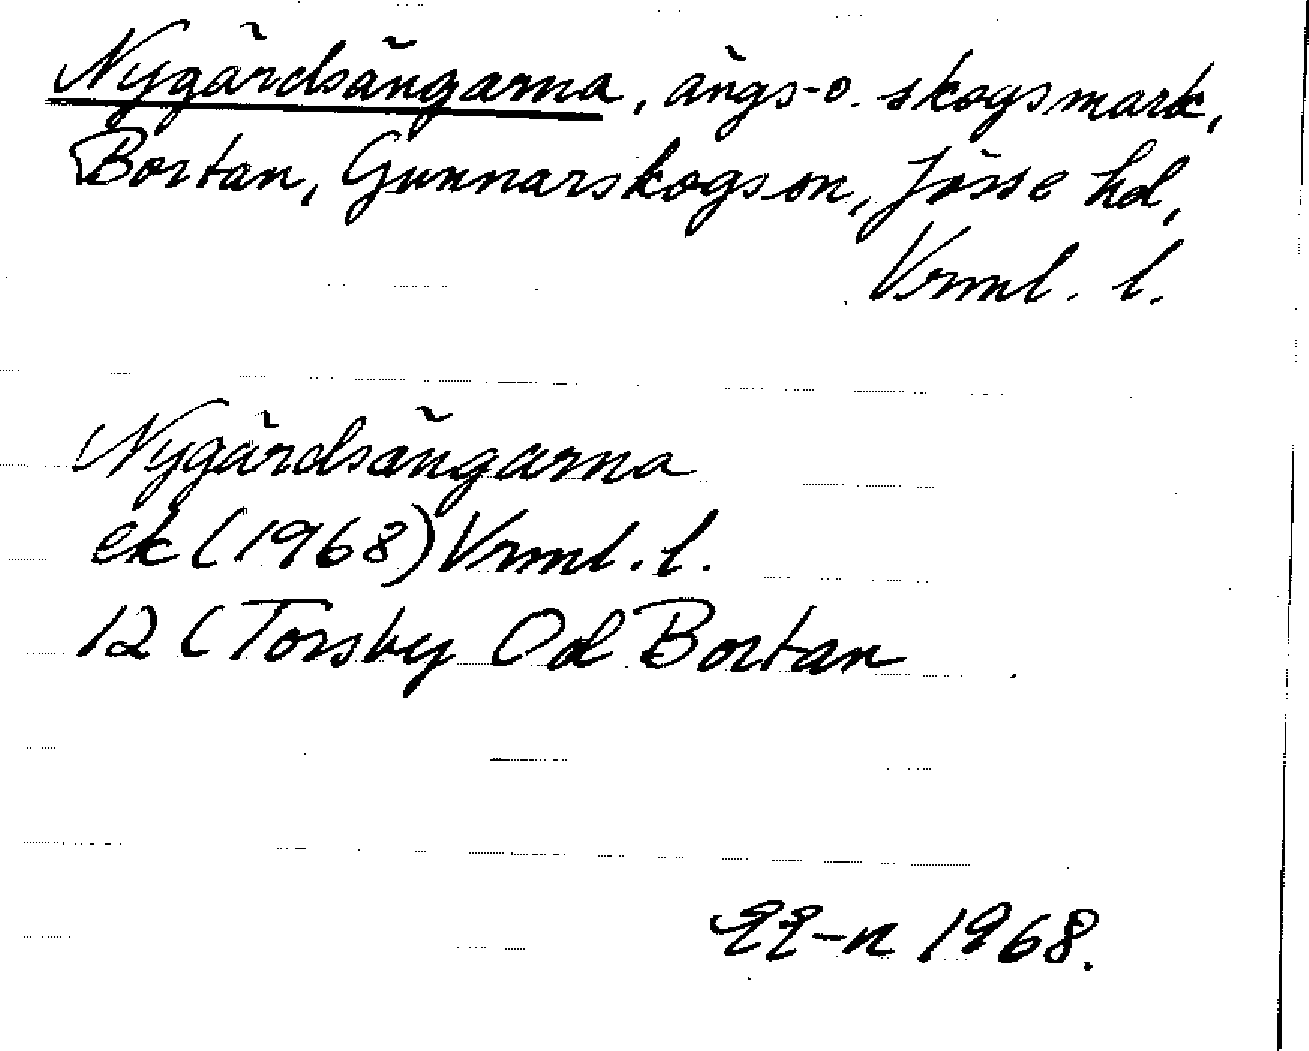 Nygårdsängarna, ängs-o. skogsmark,
Bortan, Gunnarskogs sn, Jösse hd,
Vrml. l.
Nygårdsängarna
ek (1968) Vrml. l.
12 C Torsby Od Bortan
1968.